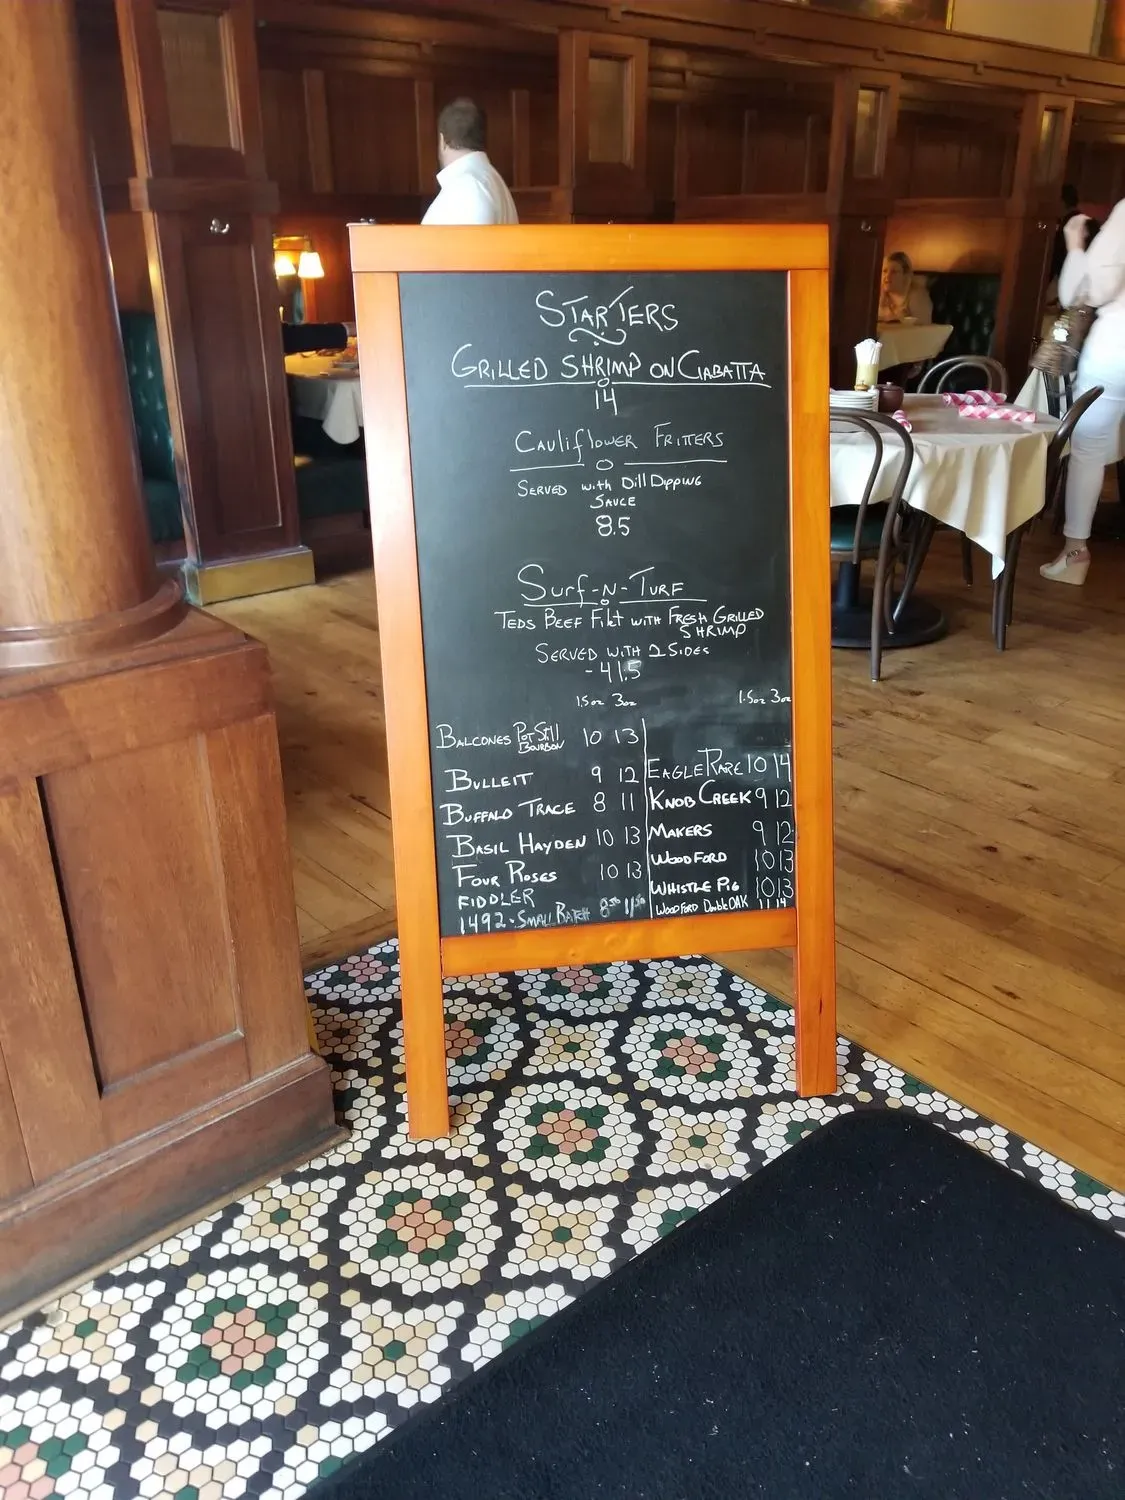 STARTERS
GRILLED SHRIMP ON CIABATTA
14
CAULIFLOWER FRITTERS
SERVED with Dill Dipping
SAUCE
8.5
SURF-N-TURF
TEDS BEEF Filet with FRESH GRILLED
SHRIMP
SERVED WITH 2 SIDES
-41.5
1.5oz 3oz
BALCONES Pot Still
BOURBON 10 13
BULLEIT 9 12
BUFFALO TRACE 8 11
BASIL HAYDEN 10 13
FOUR ROSES 10 13
FIDDLER
1492 - SMALL BATCH 8.50 11.50
1.5oz 3oz
EAGLE RARE 10 14
KNOB CREEK 9 12
MAKERS 9 12
WOODFORD 10 13
WHISTLE PIG 10 13
WOODFORD Double OAK 11 14